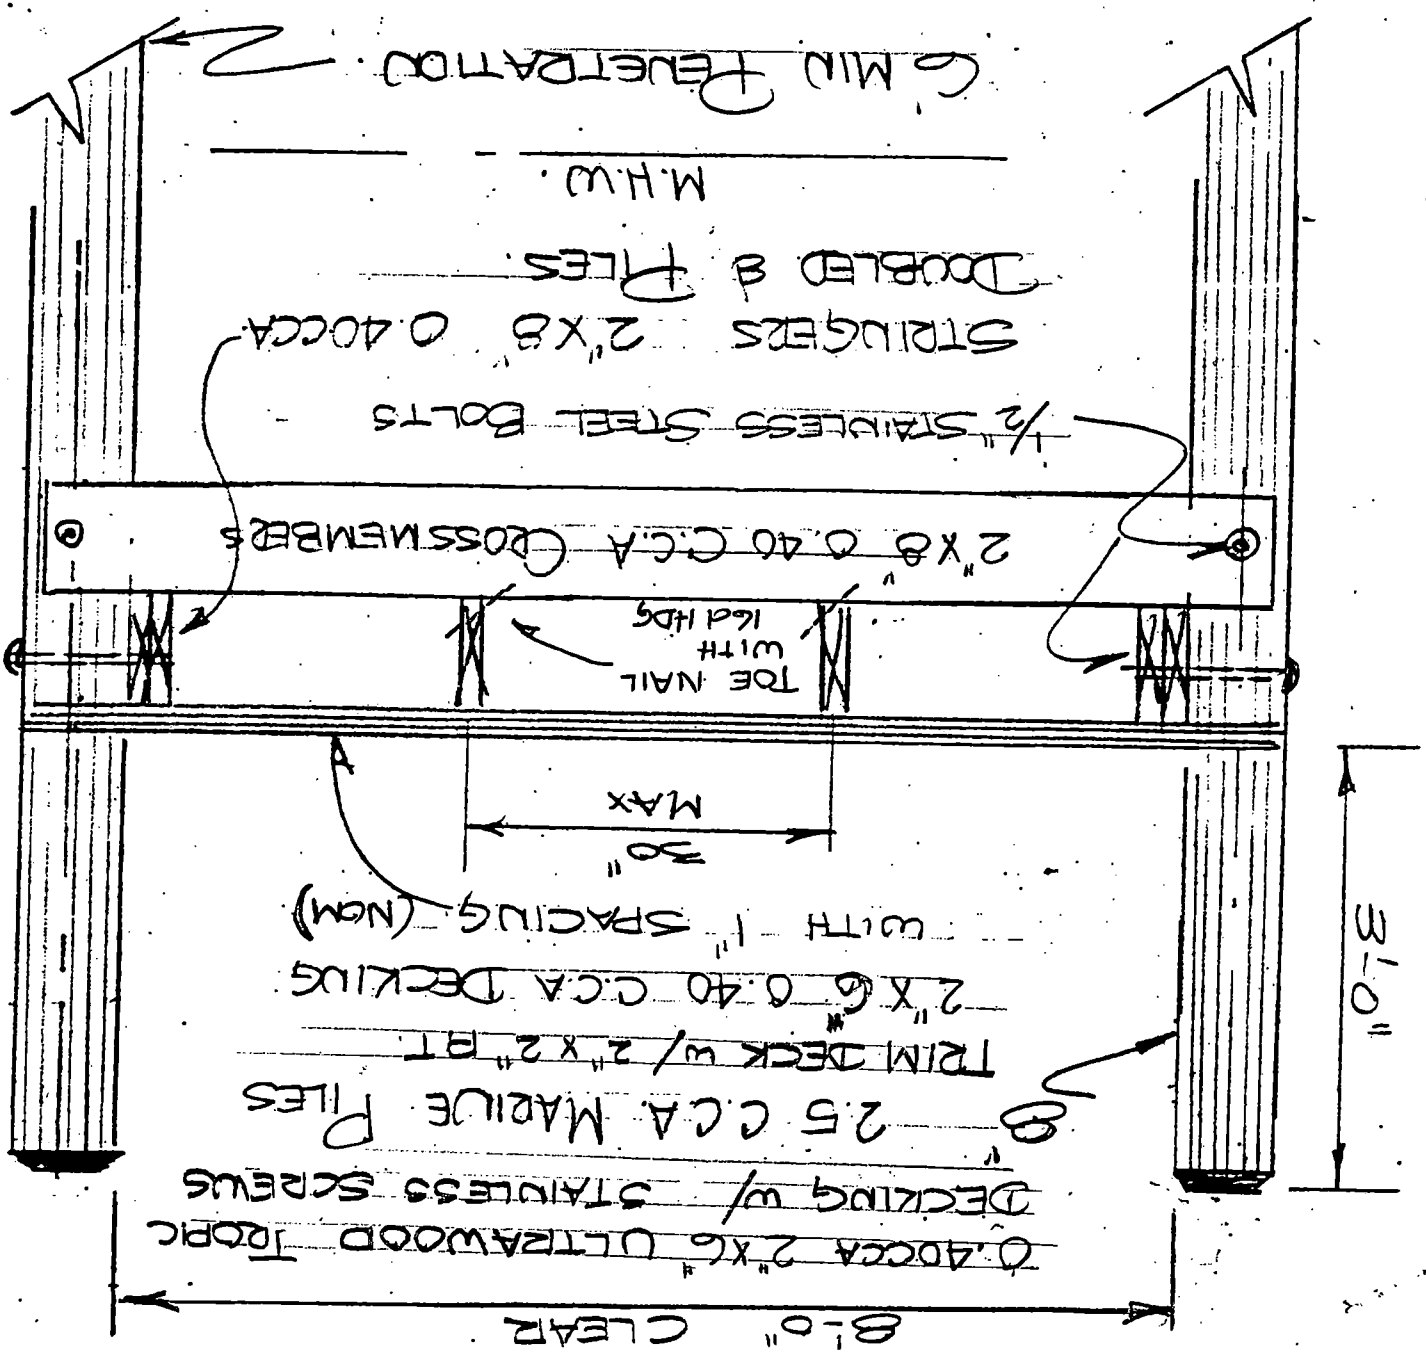 8'-0" CLEAR
0.40CCA 2"X6" ULTRAWOOD TROPIC
DECKING W/ STAINLESS SCREWS
8" 2.5 C.C.A. MARINE PILES
TRIM DECK W/ 2"X2" P.T.
2"X6" 0.40 C.C.A DECKING
WITH 1" SPACING (NOM)
3'-0"
30"
MAX
TOE NAIL
WITH
16d HDG
2"X8" 0.40 C.C.A. CROSSMEMBERS
1/2" STAINLESS STEEL BOLTS
STRINGERS 2"X8" 0.40CCA
DOUBLED @ PILES.
M.H.W.
6' MIN PENETRATION